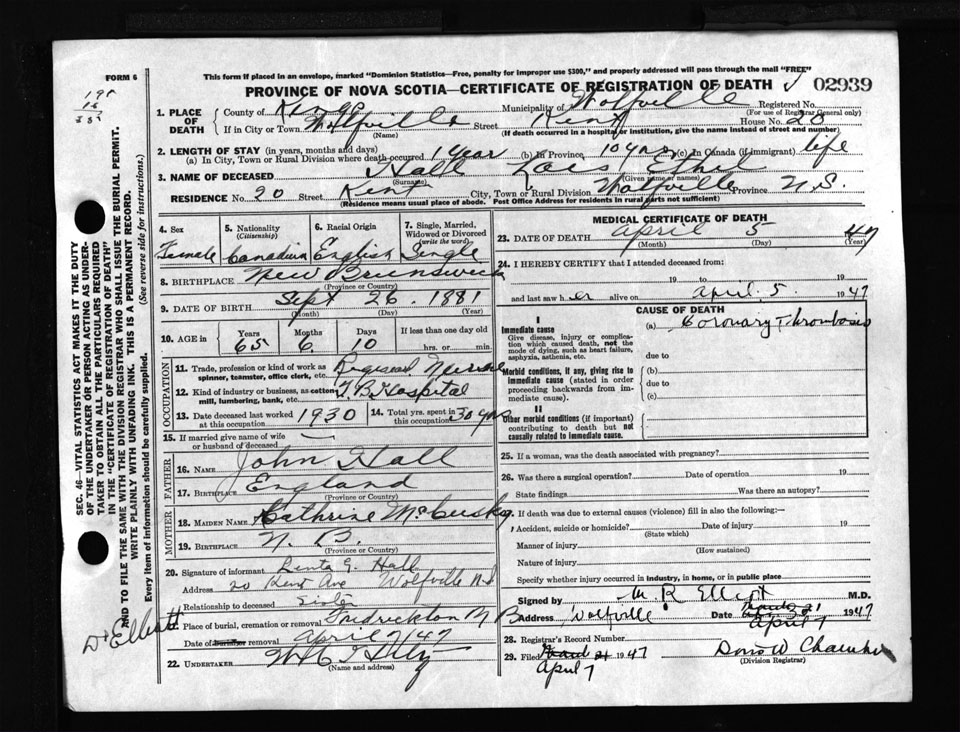 FORM 6
This form if placed in an envelope, marked "Dominion Statistics—Free, penalty for improper use $300," and properly addressed will pass through the mail "FREE"
PROVINCE OF NOVA SCOTIA—CERTIFICATE OF REGISTRATION OF DEATH 02939
1. PLACE OF DEATH County of Kings Municipality of Wolfville Registered No.
(For use of Registrar General only)
If in City or Town Wolfville Street Kent House No. 20
(Name) (If death occurred in a hospital or institution, give the name instead of street and number)
2. LENGTH OF STAY (in years, months and days)
(a) In City, Town or Rural Division where death occurred 1 year (b) In Province 10 yrs (c) In Canada (if immigrant) life
3. NAME OF DECEASED Hall Ethel
(Surname) (Given name or names)
RESIDENCE No. 20 Street Kent City, Town or Rural Division Wolfville Province N.S.
(Residence means usual place of abode. Post Office Address for residents in rural parts not sufficient)
4. Sex 5. Nationality (Citizenship) 6. Racial Origin 7. Single, Married, Widowed or Divorced (write the word)
Female Canadian English Single
8. BIRTHPLACE New Brunswick
(Province or Country)
9. DATE OF BIRTH Sept 26. 1881
(Month) (Day) (Year)
10. AGE in Years Months Days If less than one day old
65 6 10 hrs. or min.
OCCUPATION
11. Trade, profession or kind of work as spinner, teamster, office clerk, etc. Nurse
12. Kind of industry or business, as cotton mill, lumbering, bank, etc. T.B Hospital
13. Date deceased last worked at this occupation 1930 14. Total yrs. spent in this occupation 30 yrs
15. If married give name of wife or husband of deceased
FATHER
16. NAME John Hall
17. BIRTHPLACE England
(Province or Country)
MOTHER
18. MAIDEN NAME Cathrine
19. BIRTHPLACE N. B.
(Province or Country)
20. Signature of informant Hall
Address 20 Kent Ave Wolfville N.S.
Relationship to deceased Sister
21. Place of burial, cremation or removal Fredrickton N B
Date of burial or removal April 7/47
22. UNDERTAKER
(Name and address)
MEDICAL CERTIFICATE OF DEATH
23. DATE OF DEATH April 5 47
(Month) (Day) (Year)
24. I HEREBY CERTIFY that I attended deceased from:
19 to 19
and last saw her alive on April. 5. 1947
CAUSE OF DEATH
I
Immediate cause (a) Coronary Thrombosis
Give disease, injury or complication which caused death, not the mode of dying, such as heart failure, asphyxia, asthenia, etc.
due to
Morbid conditions, if any, giving rise to immediate cause (stated in order proceeding backwards from immediate cause).
(b)
due to
(c)
II
Other morbid conditions (if important) contributing to death but not causally related to immediate cause.
25. If a woman, was the death associated with pregnancy?
26. Was there a surgical operation? Date of operation 19
State findings Was there an autopsy?
27. If death was due to external causes (violence) fill in also the following:—
Accident, suicide or homicide? Date of injury 19
(State which)
Manner of injury
(How sustained)
Nature of injury
Specify whether injury occurred in industry, in home, or in public place
Signed by M. R Elliott M.D.
Address Wolfville Date April 7 1947
28. Registrar's Record Number
29. Filed April 7 1947 Doris W
(Division Registrar)
Dr Elliott
SEC. 46—VITAL STATISTICS ACT MAKES IT THE DUTY
OF THE UNDERTAKER OR PERSON ACTING AS UNDERTAKER TO OBTAIN ALL THE PARTICULARS REQUIRED
IN THE "CERTIFICATE OF REGISTRATION OF DEATH"
AND TO FILE THE SAME WITH THE DIVISION REGISTRAR WHO SHALL ISSUE THE BURIAL PERMIT.
WRITE PLAINLY WITH UNFADING INK. THIS IS A PERMANENT RECORD.
Every item of information should be carefully supplied. (See reverse side for instructions.)